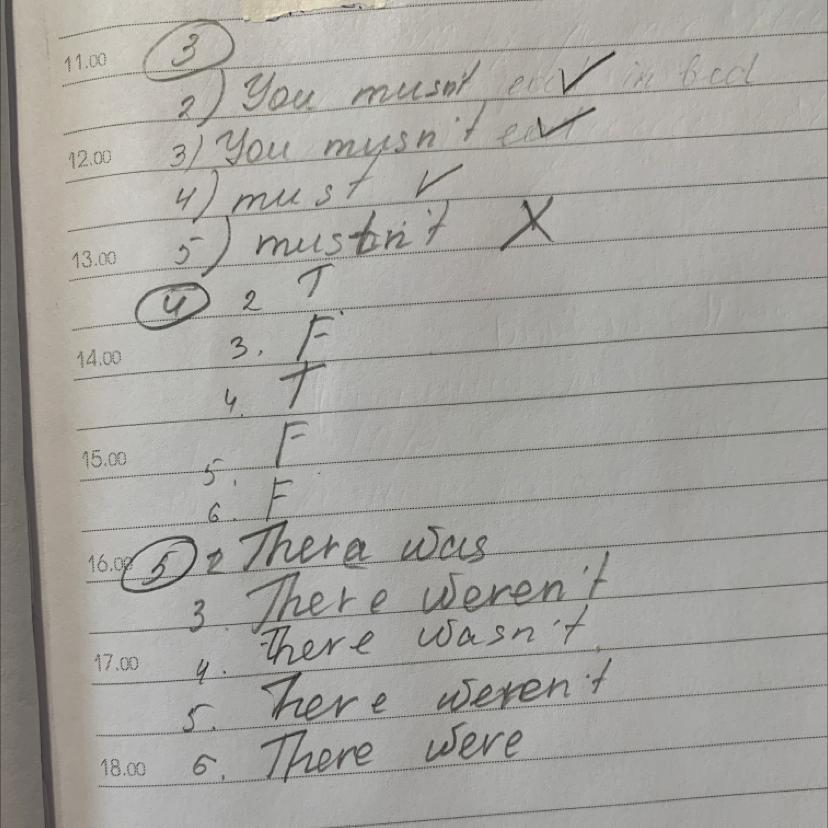 11.00 3
2) You musnt eat in bed
12.00 3) You mysn't eat
4) must
13.00 5) mustn't X
4 2 T
14.00 3. F
4. T
15.00 5. F
6. F
16.00 5 2 There was
3. There weren't
17.00 4. there wasn't
5. There weren't
18.00 6. There were